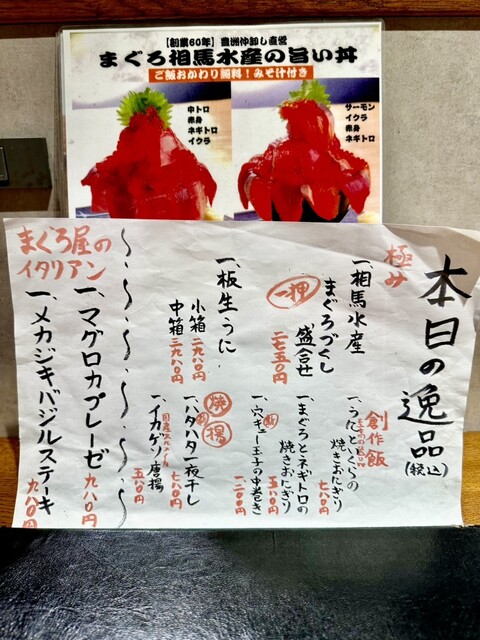 【創業60年】豊洲仲卸し直営
まぐろ相馬水産の旨い丼
ご飯おかわり無料!みそ汁付き
中トロ
赤身
ネギトロ
イクラ
サーモン
イクラ
赤身
ネギトロ
本日の逸品(税込)
極み
一、相馬水産
まぐろづくし
盛合せ
一押
二七五〇円
一、板生うに
小箱 二九八〇円
中箱 三九八〇円
創作飯
一、うにといくらの
焼きおにぎり
七八〇円
一、まぐろとネギトロの
焼きおにぎり
五八〇円
一、穴キュー王子の中巻き
一二〇〇円
焼
揚
一、ハタハタ一夜干し
七八〇円
一、イカゲソ唐揚
五八〇円
まぐろ屋の
イタリアン
一、マグロカプレーゼ
九八〇円
一、メカジキバジルステーキ
九八〇円